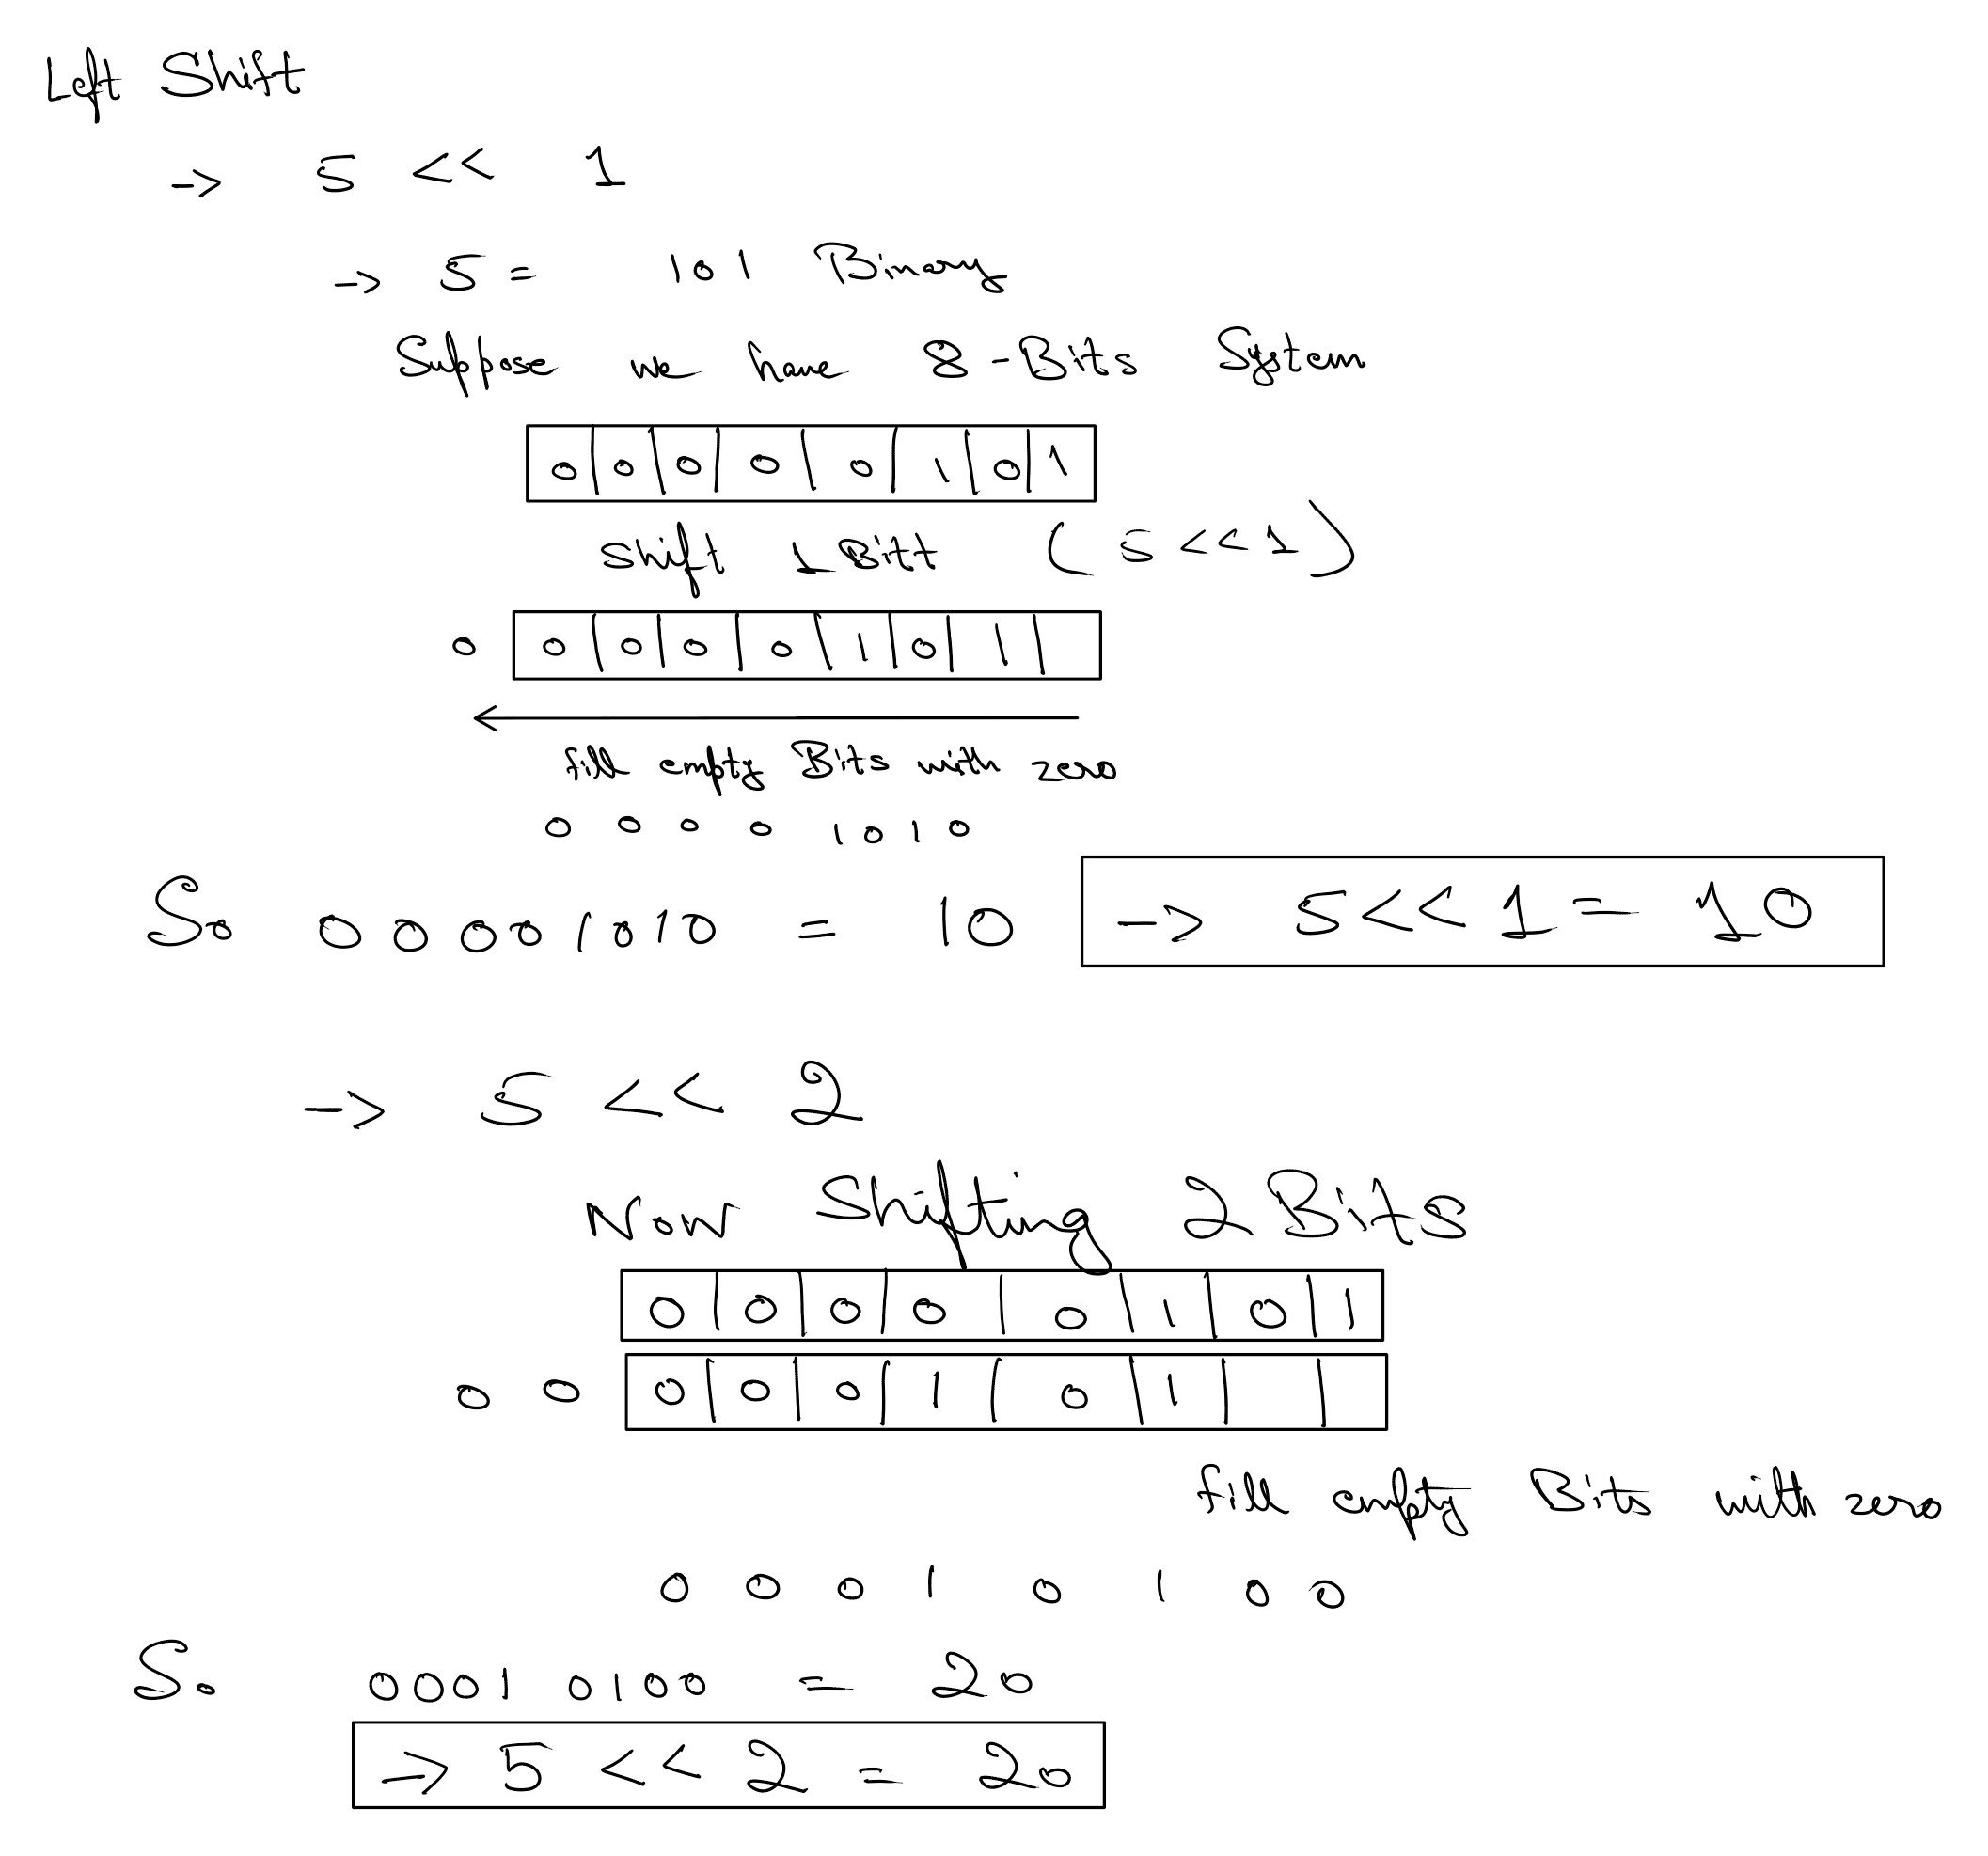 Left Shift
-> 5 << 1
-> 5 = 101 Binary
Suppose we have 8-Bits System
0 | 0 | 0 | 0 | 0 | 1 | 0 | 1
Shift 1 Bitt (5<<1)
0 0 | 0 | 0 | 0 | 1 | 0 | 1 |
fill empty Bits with zero
0 0 0 0 1 0 1 0
So 00001010 = 10 -> 5<<1 = 10
-> 5 << 2
Now Shifting 2 Bits
0 | 0 | 0 | 0 | 0 | 1 | 0 | 1
0 0 0 | 0 | 0 | 1 | 0 | 1 | |
fill empty Bits with zero
0 0 0 1 0 1 0 0
So 00010100 = 20
-> 5 << 2 = 20